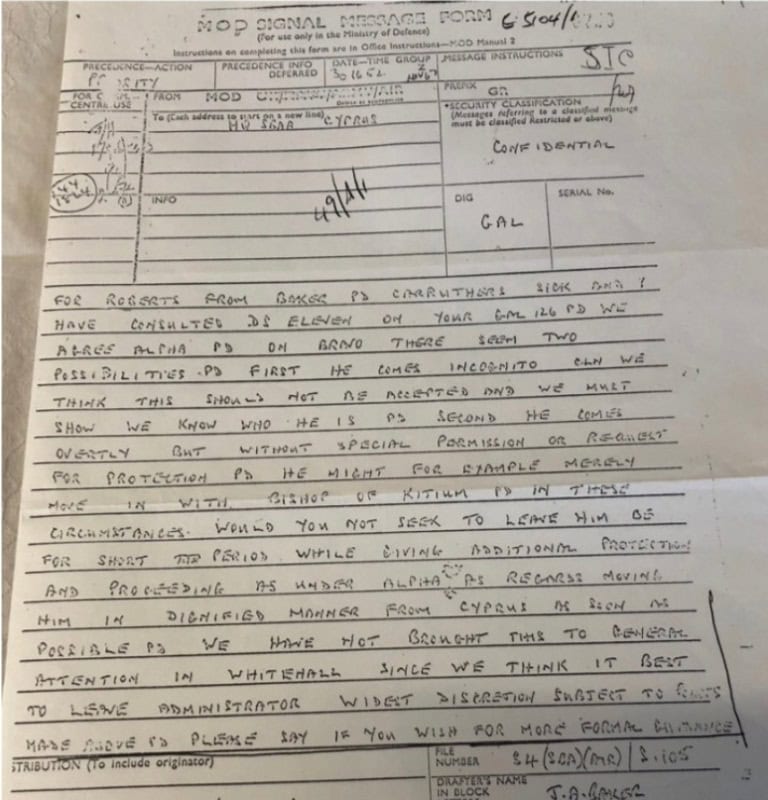 MOD SIGNAL MESSAGE FORM
(For use only in the Ministry of Defence)
Instructions on completing this form are in Office Instructions—MOD Manual 2
PRECEDENCE—ACTION
PRECEDENCE INFO
DEFERRED
DATE—TIME GROUP
MESSAGE INSTRUCTIONS
SIC
FROM MOD
PREFIX GR
CENTRE USE
To (Each address to start on a new line)
CYPRUS
*SECURITY CLASSIFICATION
(Messages referring to a classified message
must be classified Restricted or above)
CONFIDENTIAL
INFO
DIG
GAL
SERIAL No.
FOR ROBERTS FROM BAKER PD CARRUTHERS SICK AND I
HAVE CONSULTED DS ELEVEN ON YOUR GAL 126 PD WE
AGREE ALPHA PD ON BRAVO THERE SEEM TWO
POSSIBILITIES PD FIRST HE COMES INCOGNITO CLN WE
THINK THIS SHOULD NOT BE ACCEPTED AND WE MUST
SHOW WE KNOW WHO HE IS PD SECOND HE COMES
OVERTLY BUT WITHOUT SPECIAL PERMISSION OR REQUEST
FOR PROTECTION PD HE MIGHT FOR EXAMPLE MERELY
MOVE IN WITH BISHOP OF KITIUM PD IN THESE
CIRCUMSTANCES WOULD YOU NOT SEEK TO LEAVE HIM BE
FOR SHORT PERIOD WHILE GIVING ADDITIONAL PROTECTION
AND PROCEEDING AS UNDER ALPHA AS REGARDS MOVING
HIM IN DIGNIFIED MANNER FROM CYPRUS AS SOON AS
POSSIBLE PD WE HAVE NOT BROUGHT THIS TO GENERAL
ATTENTION IN WHITEHALL SINCE WE THINK IT BEST
TO LEAVE ADMINISTRATOR WIDEST DISCRETION SUBJECT TO
MADE ABOVE PD PLEASE SAY IF YOU WISH FOR MORE FORMAL GUIDANCE
STRIBUTION (To include originator)
FILE
NUMBER
DRAFTER'S NAME
IN BLOCK
J.A. BAKER